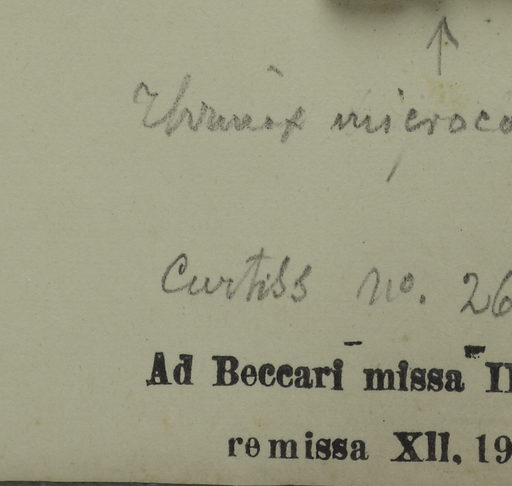 Thrinax microca
Curtiss no. 26
Ad Beccari missa II
remissa XII. 19